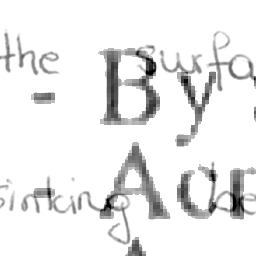 the surfa
- By
sinking be
- Acr